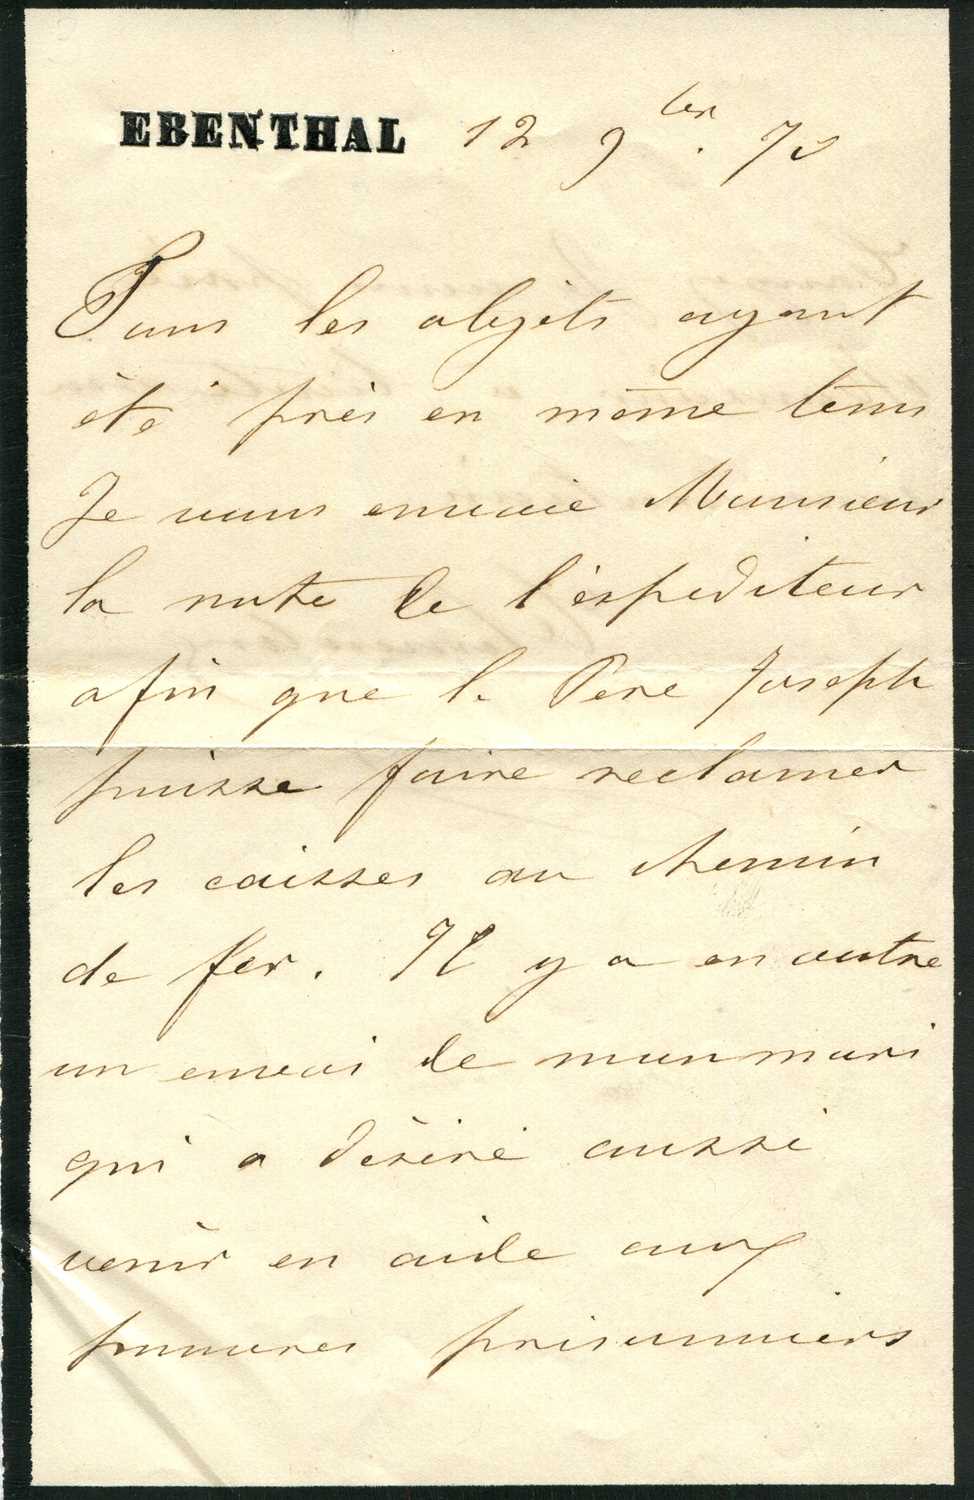 EBENTHAL 12 9ber. 70
Tous les objets ayant
été près en même tems
Je vous envoie Monsieur
la note de l'éspediteur
afin que le Père Joseph
puisse faire reclamer
les caisses au chemin
de fer. Il y a en outre
un envoi de mon mari
qui a désiré aussi
venir en aide aux
pauvres prisonniers